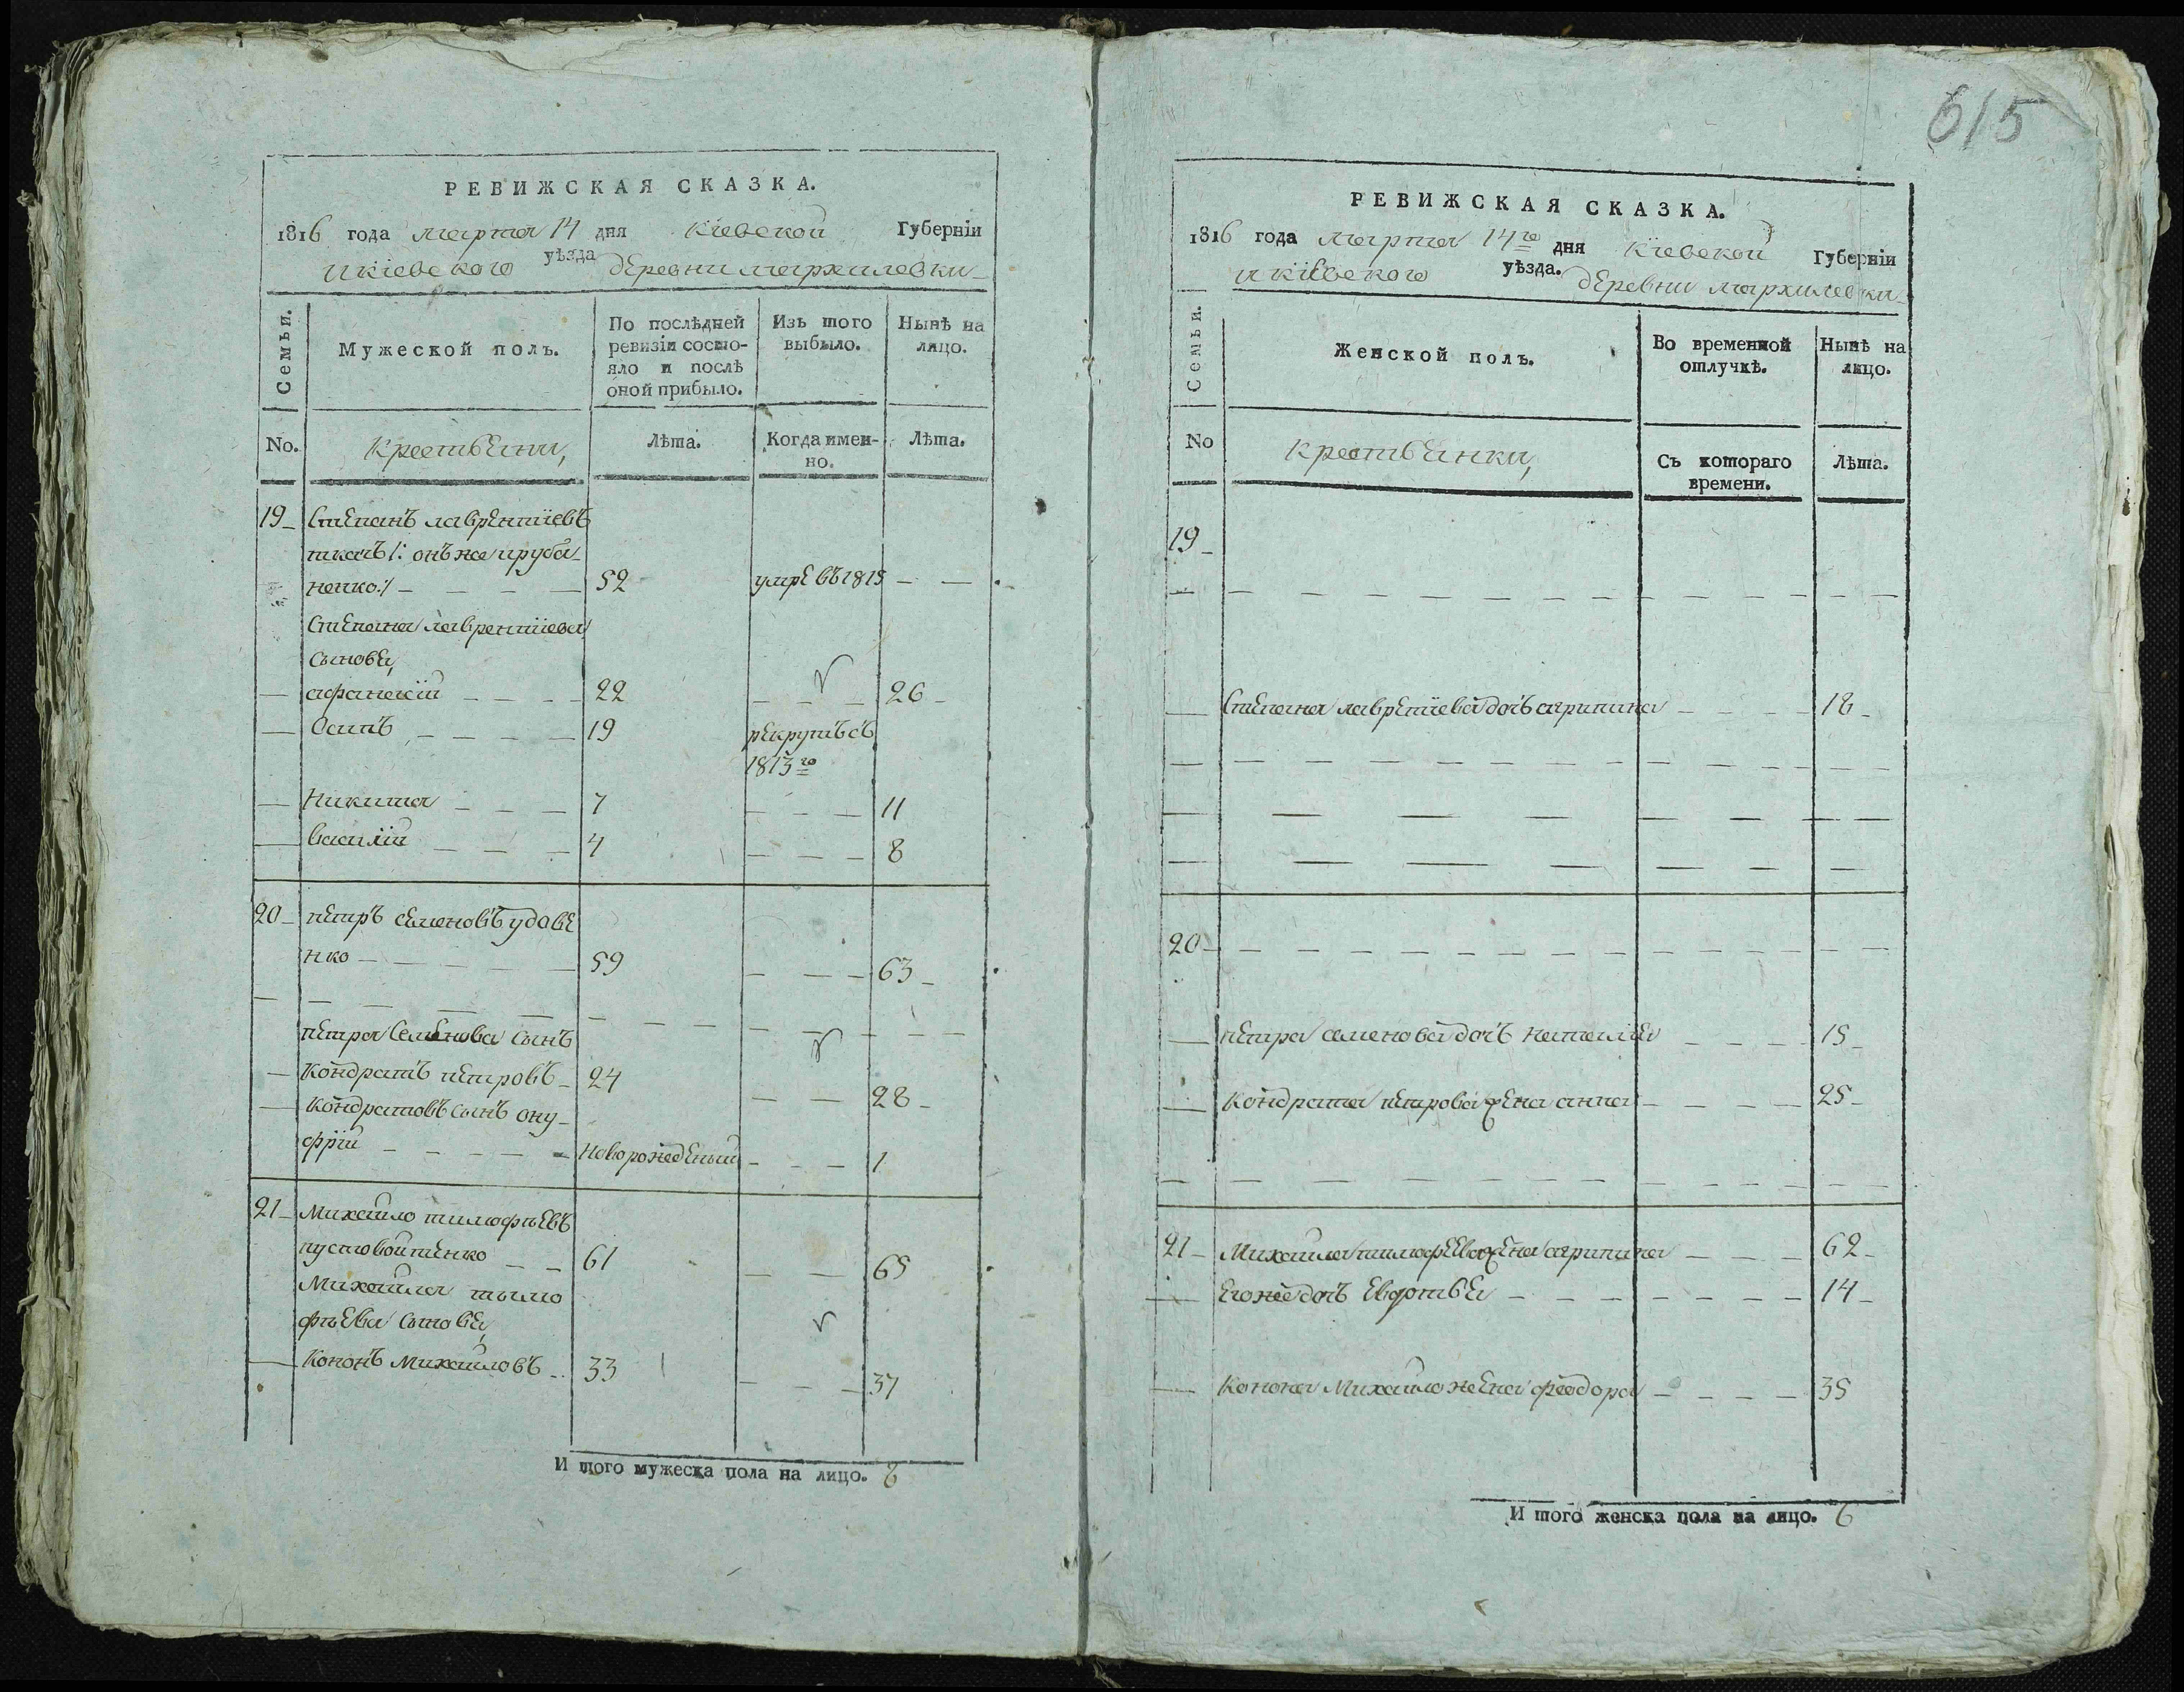 РЕВИЖСКАЯ СКАЗКА.
1816 года марта 14 дня кїевской Губерніи
и кїевского уѣзда деревни мархилевки
Семьи.
Мужеской полъ.
По послѣдней ревизіи состо-
яло и послѣ
оной прибыло.
Изъ того выбыло.
Нынѣ на лицо.
No.
крестьяни,
Лѣта.
Когда имен-
но.
Лѣта.
19 Степанъ лаврентїевъ
ткачъ /: онъ же
ненко :/ 52 умре въ 1815
Степана лаврентїева
сыновья,
афанасїй 22 26
Осипъ 19 рекрутъ съ
1813го
Никита 7 11
василїй 4 8
20 петръ семеновъ удове
нко 59 63
петра Семенова сынъ
кондратъ петровъ 24 28
кондратовъ сынъ ону
фрїй новорожденый 1
21 михайло тимофѣевъ
пустовойтенко 61 65
михайла тымо
фѣева сыновья,
кононъ михайловъ 33 37
И того мужеска пола на лицо. 8
615
РЕВИЖСКАЯ СКАЗКА.
1816 года марта 14го дня кїевской Губерніи
и кїевского уѣзда. деревни мархилевки
Семьи.
Женской полъ.
Во временной отлучкѣ.
Нынѣ на лицо.
No
крестьянки,
Съ котораго времени.
Лѣта.
19
Степана лаврентїева дочь агрипина 18
20
петра семенова дочь наталїя 15
кондрата петрова жена анна 25
21 Михайла тимофеева жена агрипина 62
его же дочь Евдотья 14
конона Михайло жена феодора 35
И того женска пола на лицо. 6